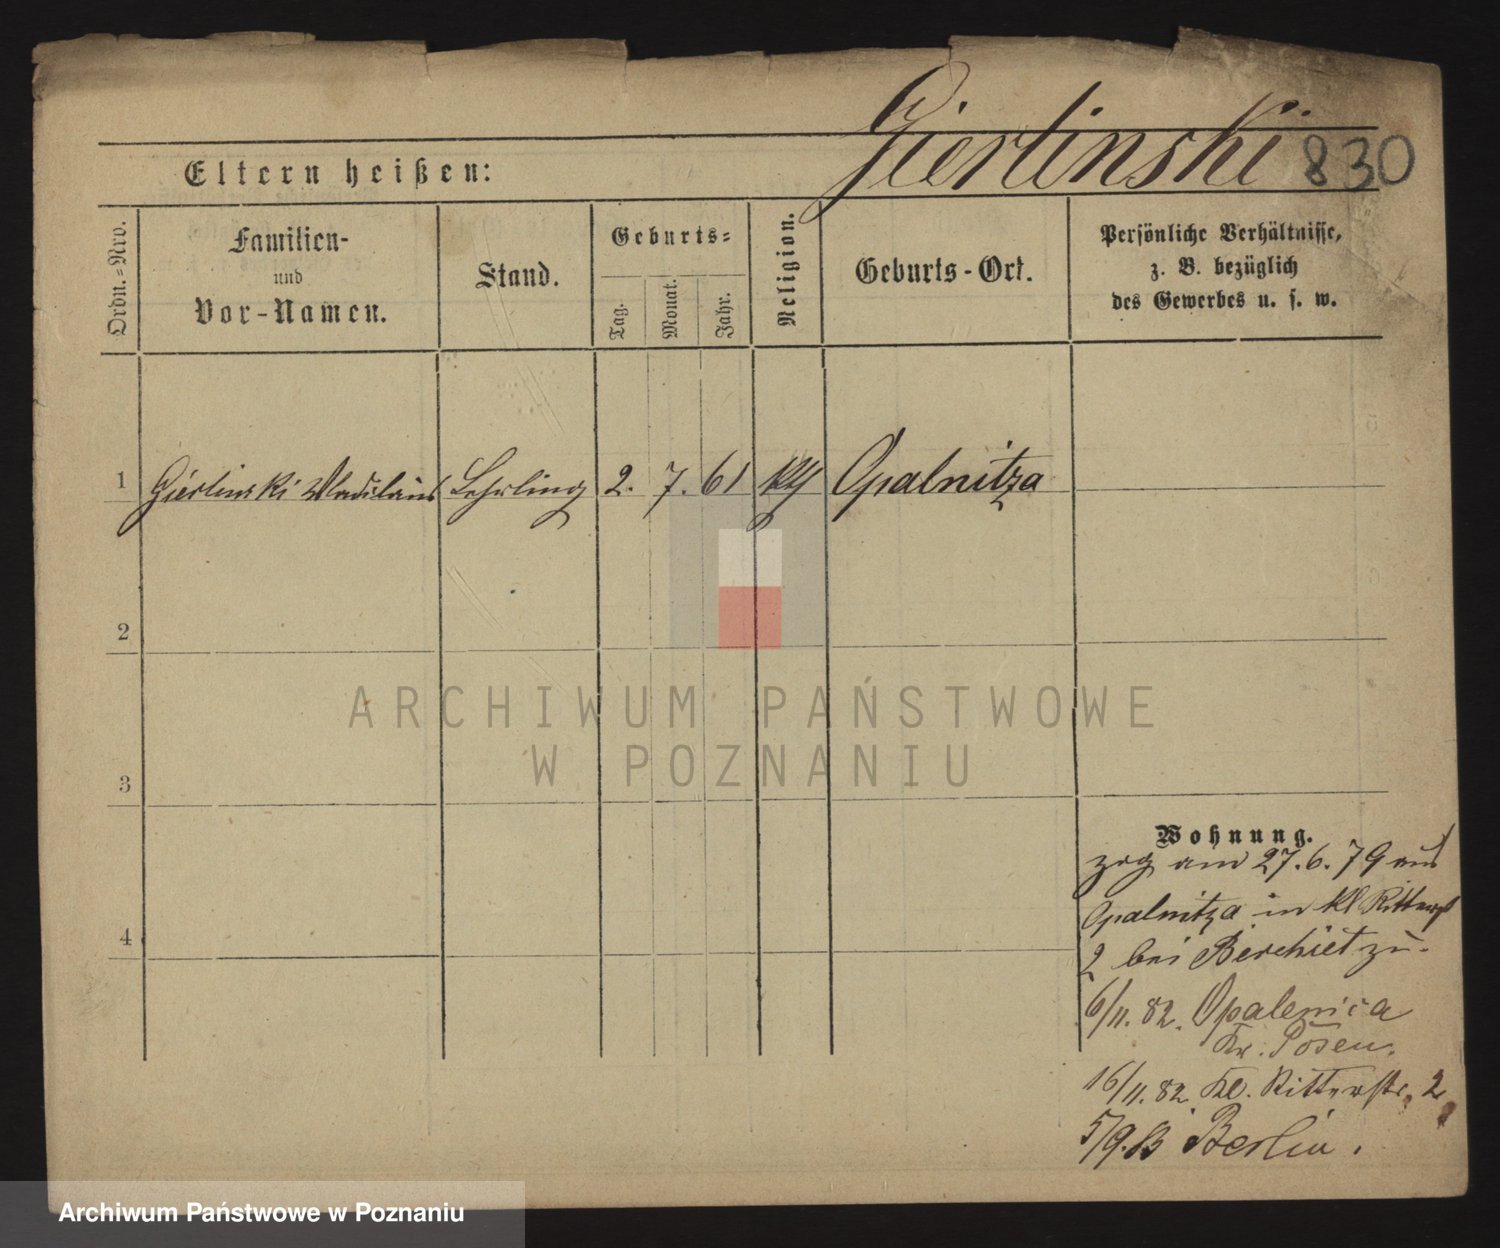 Gierlinski 830
Eltern heißen:
Ordn.-Nro.
Familien-
und
Vor-Namen.
Stand.
Geburts-
Tag.
Monat.
Jahr.
Religion.
Geburts-Ort.
Persönliche Verhältnisse,
z. B. bezüglich
des Gewerbes u. s. w.
1 Gierlinski Wladislaus Lehrling 2. 7. 61 Opalnitza
2
3
4
Wohnung.
zog am 27. 6. 79 aus
Opalnitza in Kl Ritterst
2 bei zu.
6/11. 82. Opalenica
Kr. Posen.
16/11. 82. Kl. Ritterstr. 2
5/9. Berlin.
ARCHIWUM PAŃSTWOWE
W POZNANIU
Archiwum Państwowe w Poznaniu